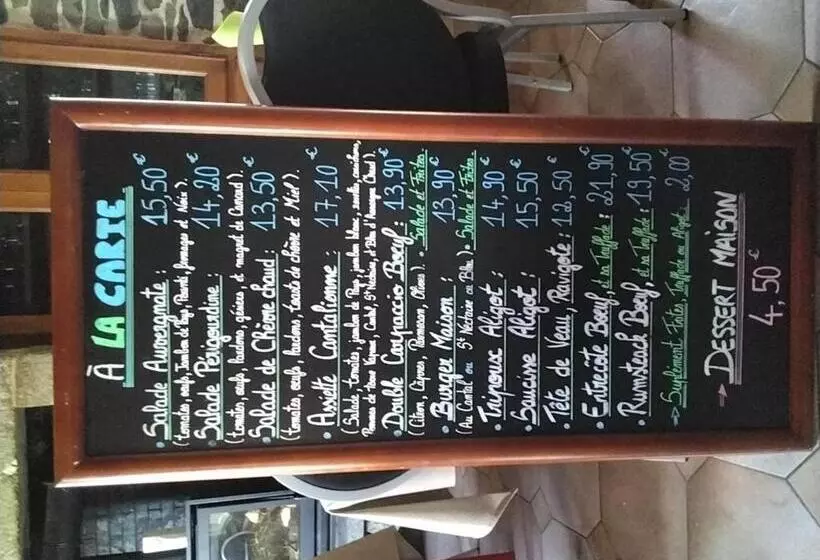 À LA CARTE
• Salade Auvergnate : 15,50€
(tomates, oeufs, Jambon de Pays, fromages et Noix).
• Salade Périgourdine : 14,20€
(tomates, oeufs, lardons, gésiers, et magret de Canard).
• Salade de Chèvre chaud : 13,50€
(tomates, oeufs, lardons, toasts de chèvre et Miel).
• Assiette Cantalienne : 17,10€
(Salade, tomates, jambon de Pays, jambon blanc, cornichons,
Pommes de terre Vapeur, Cantal, St Nectaire et Bleu d'Auvergne Chaud).
• Double Carpaccio Boeuf : 13,90€
(Citron, Câpres, Parmesan, Olives). • Salade et Frites.
• Burger Maison : 13,90€
(Au Cantal ou St Nectaire ou Bleu) • Salade et Frites.
• Tripoux Aligot : 14,90€
• Saucisse Aligot : 15,50€
• Tête de Veau, Ravigote : 12,50€
• Entrecôte Boeuf, et sa Truffade : 21,90€
• Rumsteack Boeuf, et sa Truffade : 19,50€
→ Suplément Frites, Truffade ou Aligot : 2,00€
→ DESSERT MAISON
4,50€